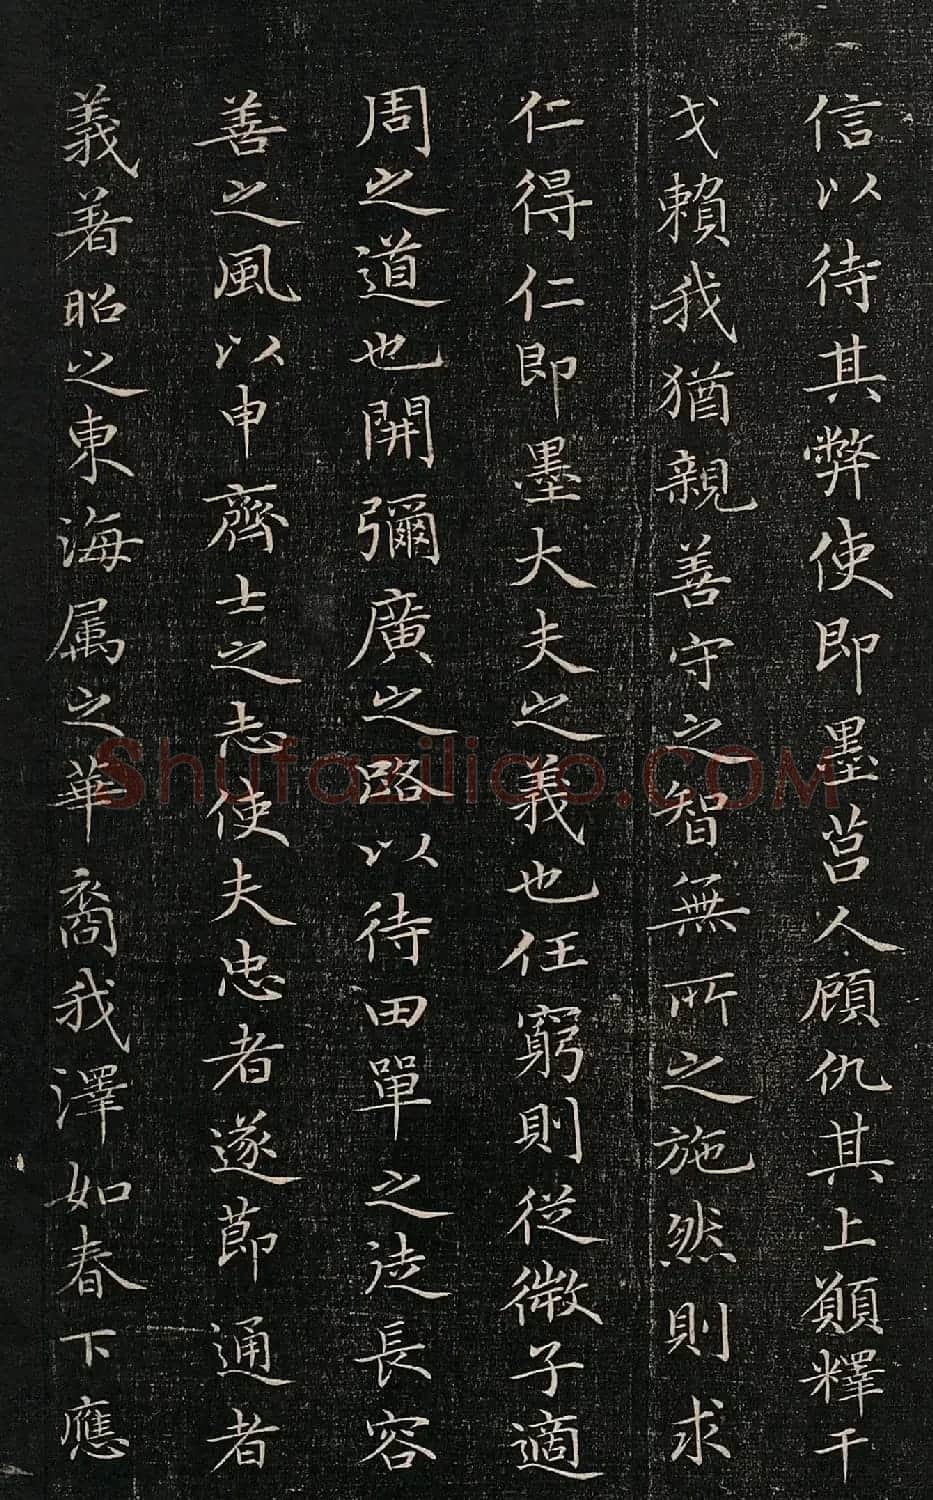 信以待其弊使即墨莒人顧仇其上願釋干
戈賴我猶親善守之智無所之施然則求
仁得仁即墨大夫之義也任窮則從微子適
周之道也開彌廣之路以待田單之徒長容
善之風以申齊士之志使夫忠者遂節通者
義著昭之東海属之華裔我澤如春下應
Shufaziliao.COM